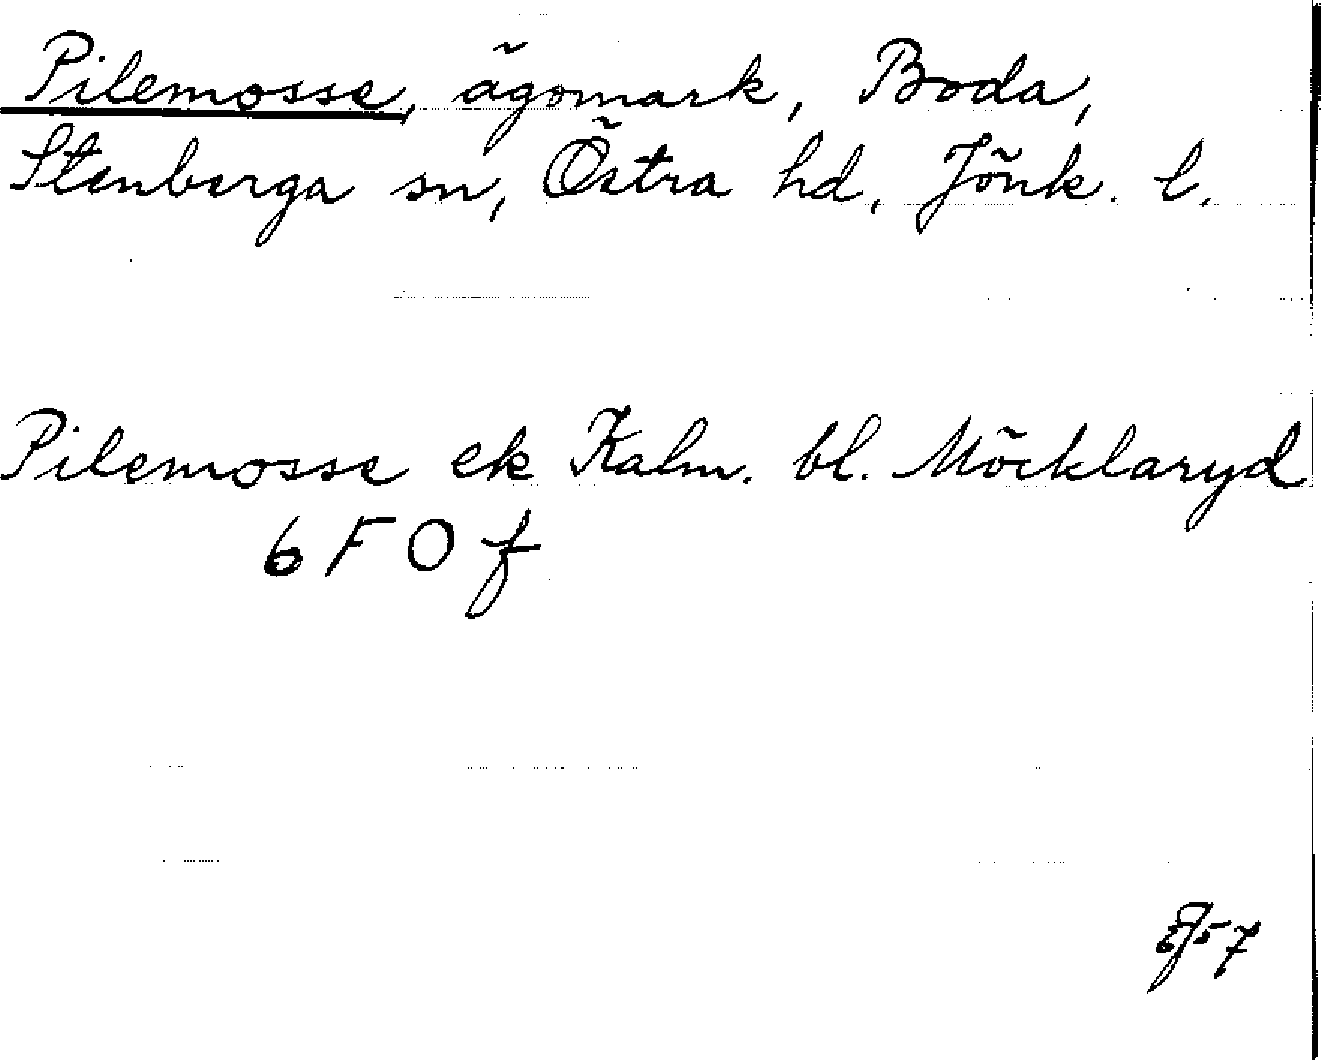 Pilemosse, ägomark, Boda,
Stenberga sn, Östra hd, Jönk. l.
Pilemosse ek Kalm. bl. Möcklaryd
6 F O f